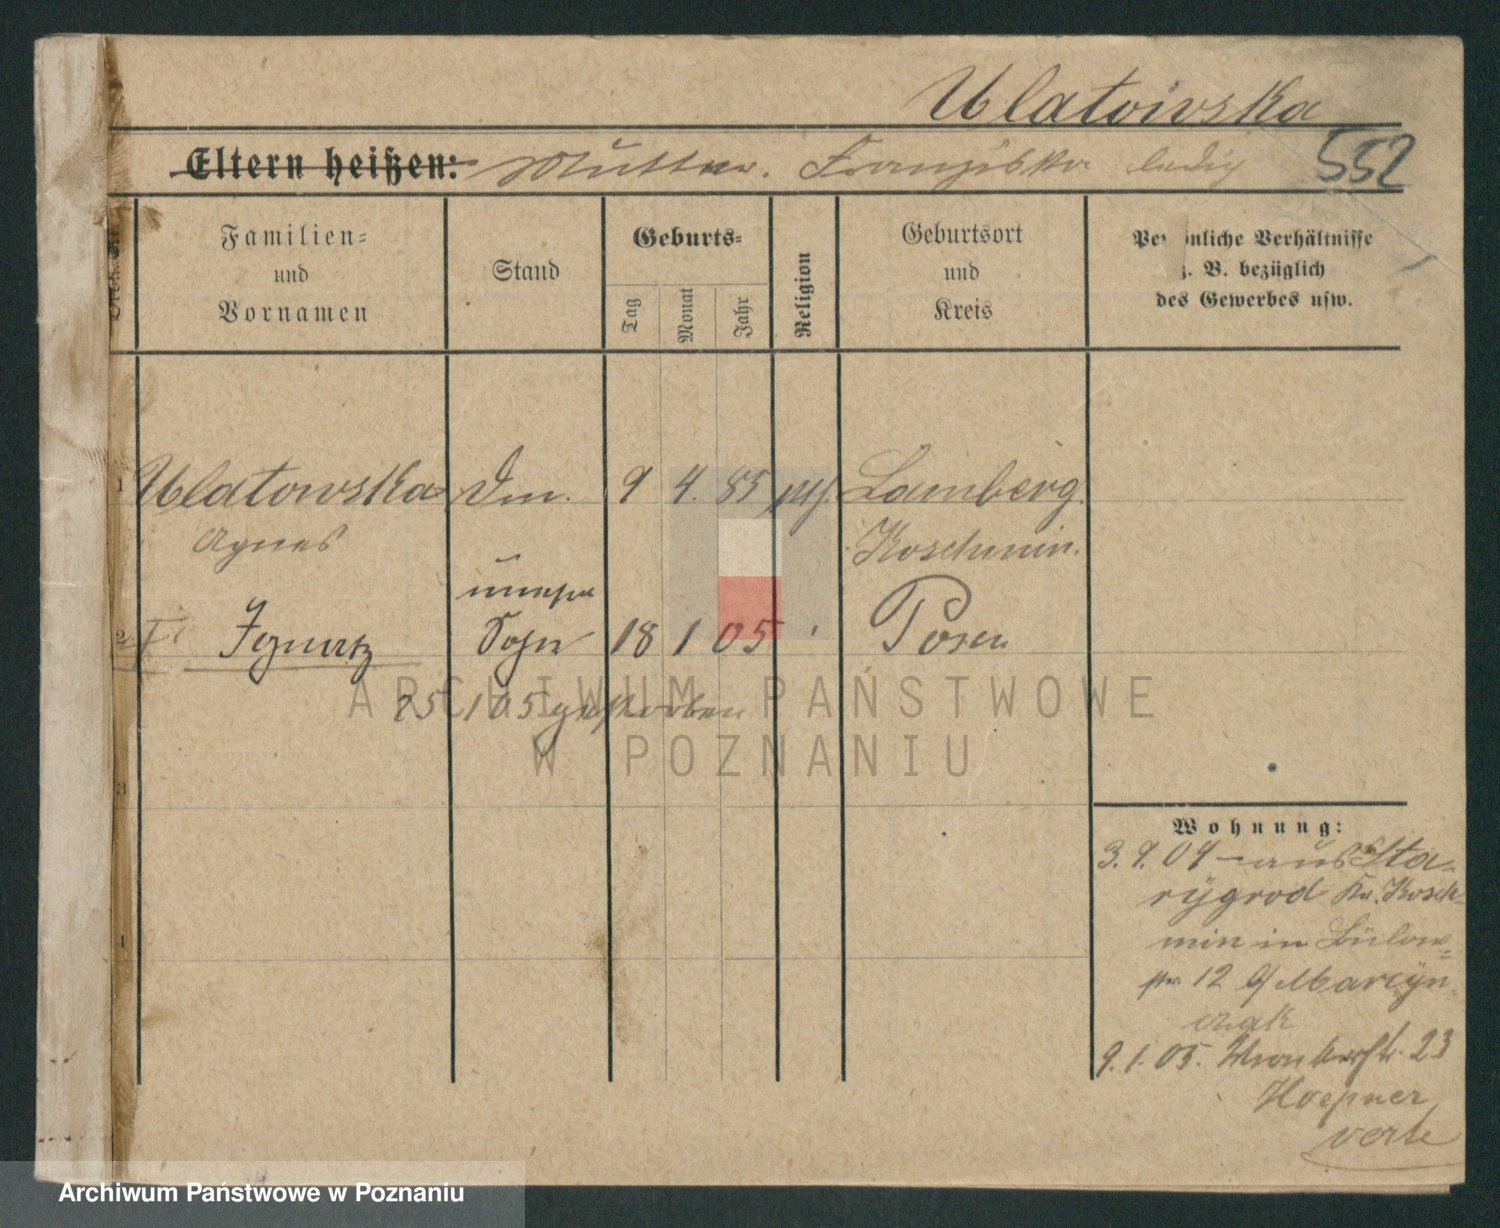 Ulatowska
Eltern heißen: Mutter. Franziska ledig 552
Familien=
und
Vornamen
Stand
Geburts=
Tag
Monat
Jahr
Religion
Geburtsort
und
Kreis
Persönliche Verhältnisse
z. B. bezüglich
des Gewerbes usw.
1 Ulatowska 9 4. 85 Lainberg
Agnes Koschmin.
unehel
2 Ignatz Sohn 18 1 05 Posen
25 1 05 gestorben
3
4
Wohnung:
3. 9. 04 – aus Sta=
rygrod Kr. Kosch=
min in Bülow=
str. 12 b/ Marcyn=
czak
9. 1. 05. Wronkerstr. 23
Hoepner
verte
ARCHIWUM PAŃSTWOWE
W POZNANIU
Archiwum Państwowe w Poznaniu